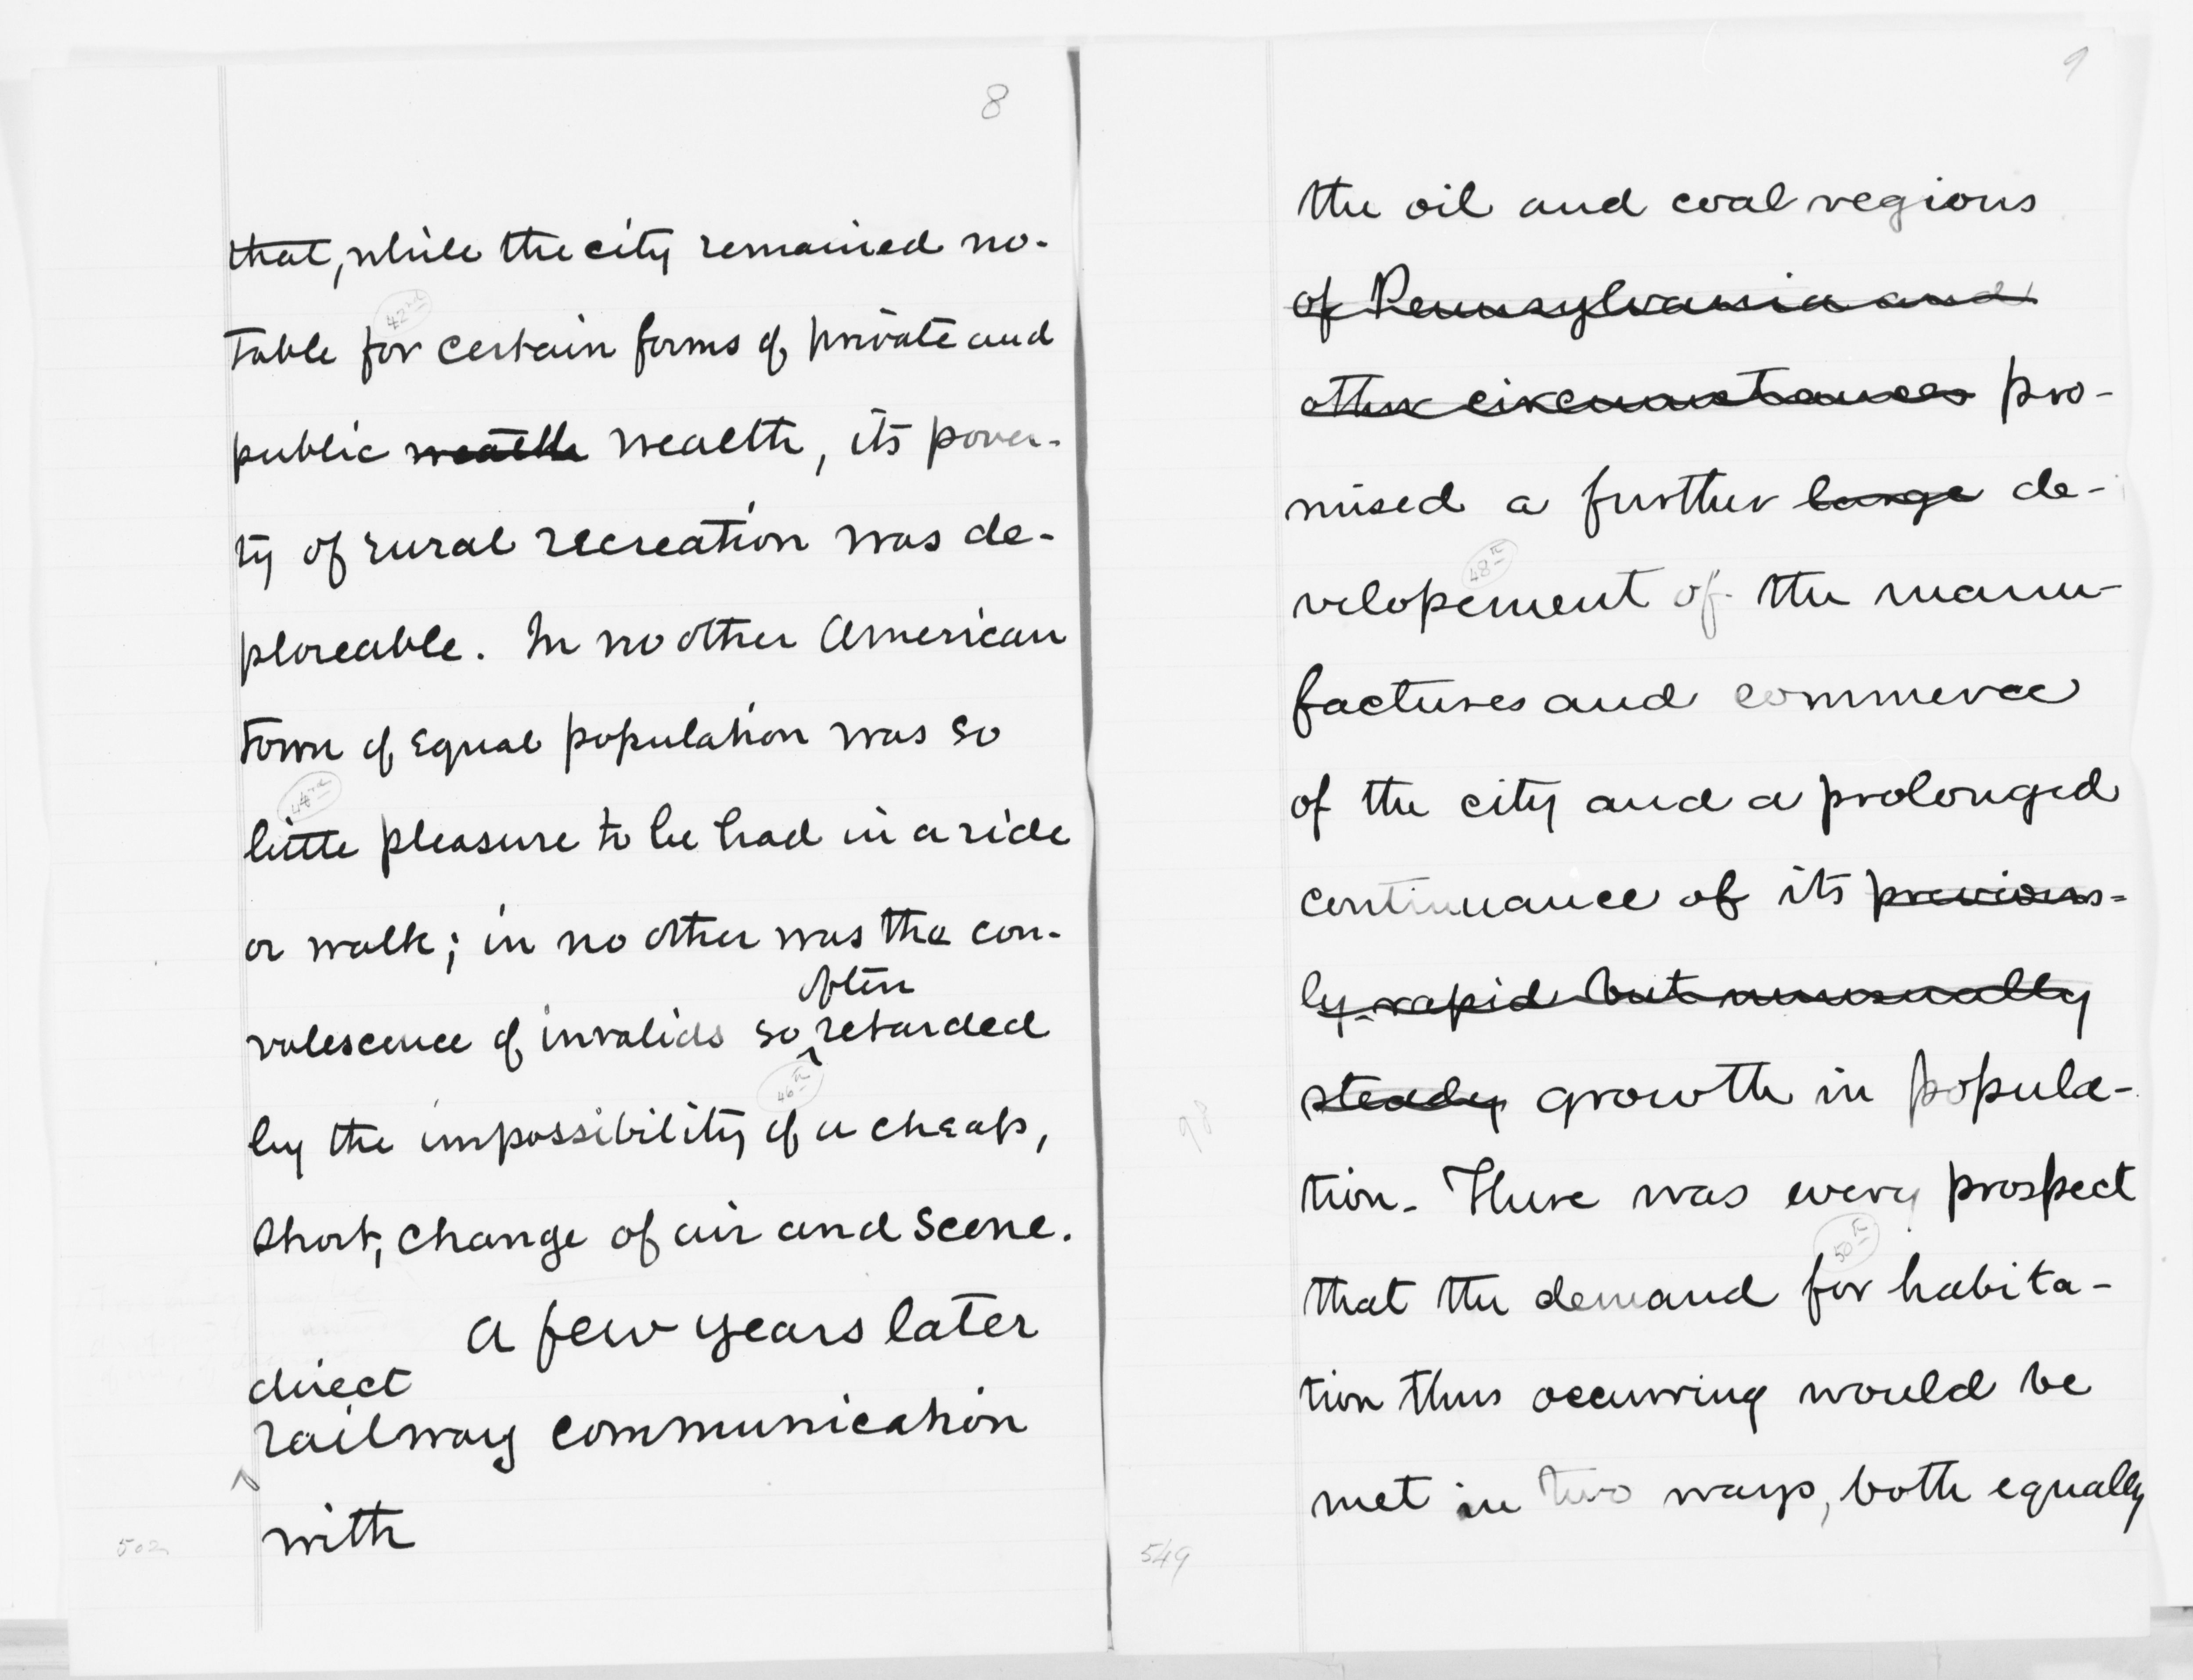 8
that, while the city remained no-
table for certain forms of private and
42nd
public wealth wealth, its pover-
ty of rural recreation was de-
ploreable. In no other American
town of equal population was so
44th
little pleasure to be had in a ride
or walk; in no other was the con-
often
valescence of invalids so retarded
46th
by the impossibility of a cheap,
short, change of air and scene.
A few years later
direct
railway communication
with
502
9
the oil and coal regions
of Pennsylvania and
other circumstances pro-
mised a further large de-
48th
velopement of the manu-
factures and commerce
of the city and a prolonged
continuance of its previous-
ly rapid but unusually
steady growth in popula-
98
tion. There was every prospect
50th
that the demand for habita-
tion thus occurring would be
met in two ways, both equally
549